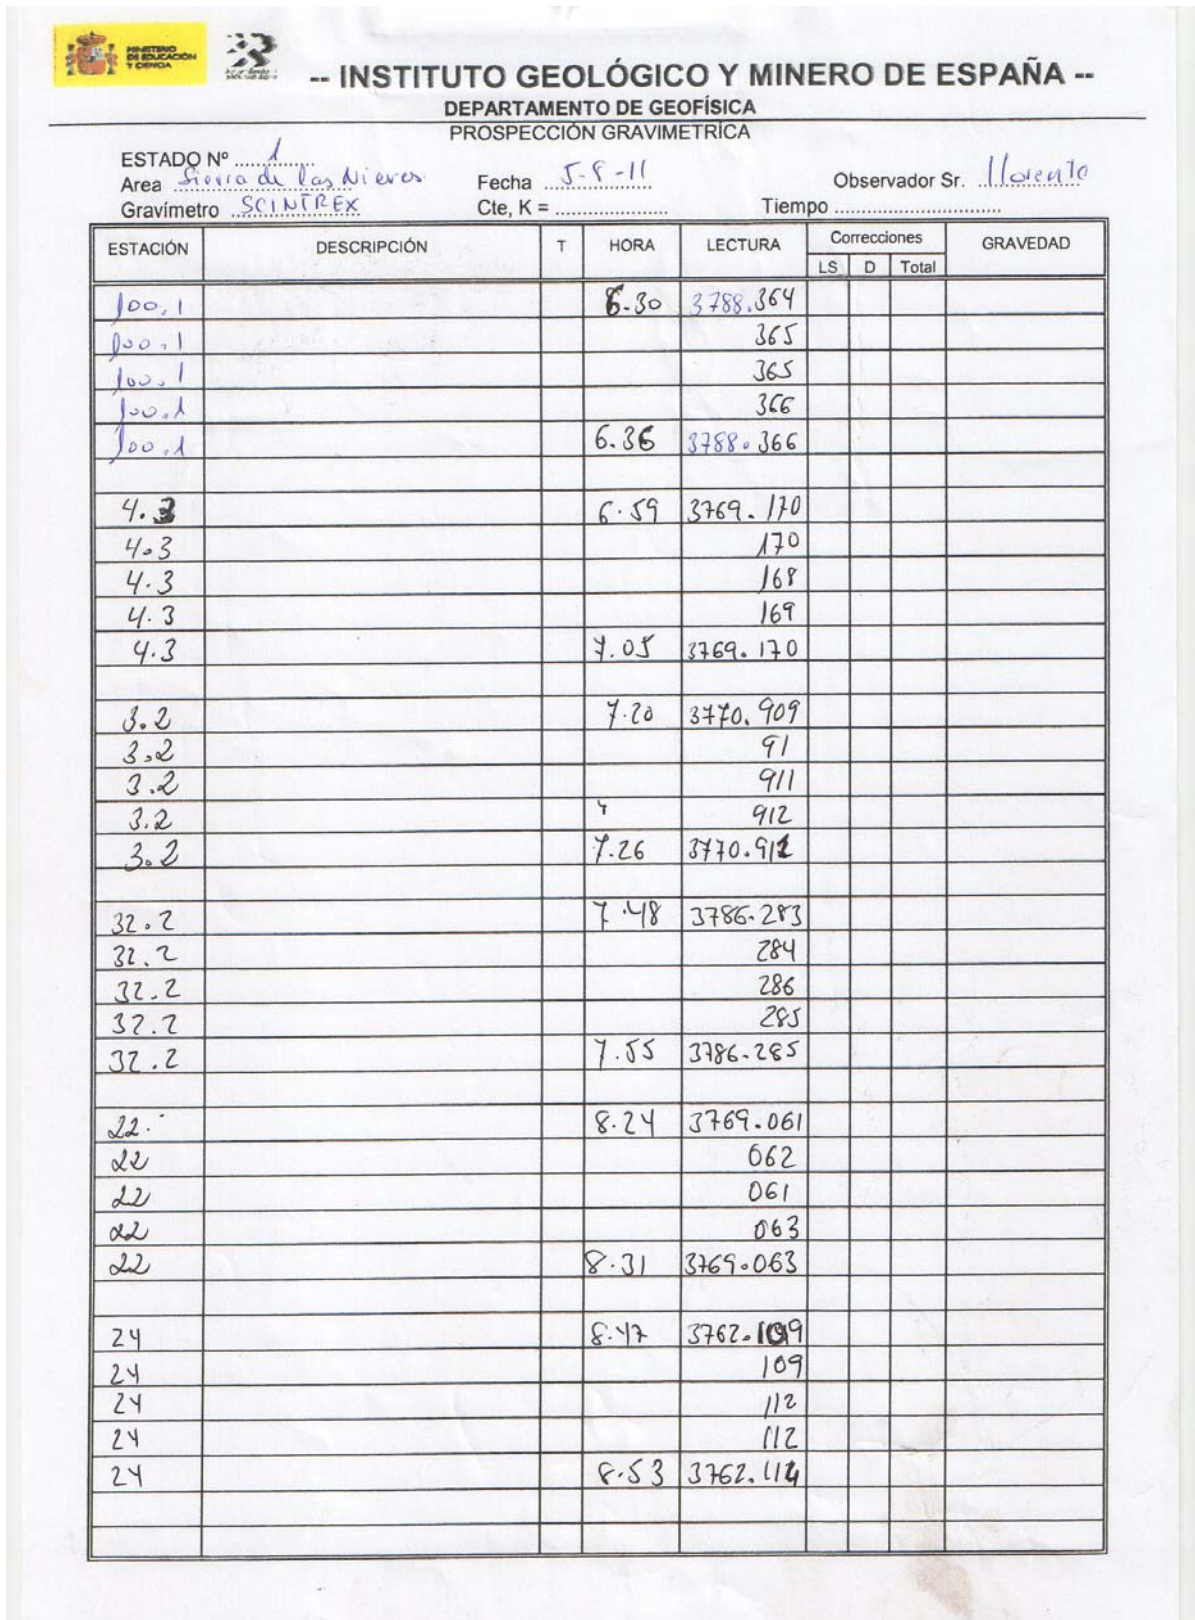 MINISTERIO
DE EDUCACIÓN
Y CIENCIA
-- INSTITUTO GEOLÓGICO Y MINERO DE ESPAÑA --
DEPARTAMENTO DE GEOFÍSICA
PROSPECCIÓN GRAVIMETRÍCA
ESTADO Nº 1
Area Sierra de las Nieves Fecha 5-8-11 Observador Sr. Llorente
Gravímetro SCINTREX Cte, K = ...................... Tiempo ................................
ESTACIÓN DESCRIPCIÓN T HORA LECTURA Correcciones GRAVEDAD
LS D Total
100.1 6.30 3788.364
100.1 365
100.1 365
100.1 366
100.1 6.36 3788.366
4.3 6.59 3769.170
4.3 170
4.3 168
4.3 169
4.3 7.05 3769.170
3.2 7.20 3770.909
3.2 91
3.2 911
3.2 912
3.2 7.26 3770.912
32.2 7.48 3786.283
32.2 284
32.2 286
32.2 285
32.2 7.55 3786.285
22. 8.24 3769.061
22 062
22 061
22 063
22 8.31 3769.063
24 8.47 3762.109
24 109
24 112
24 112
24 8.53 3762.114